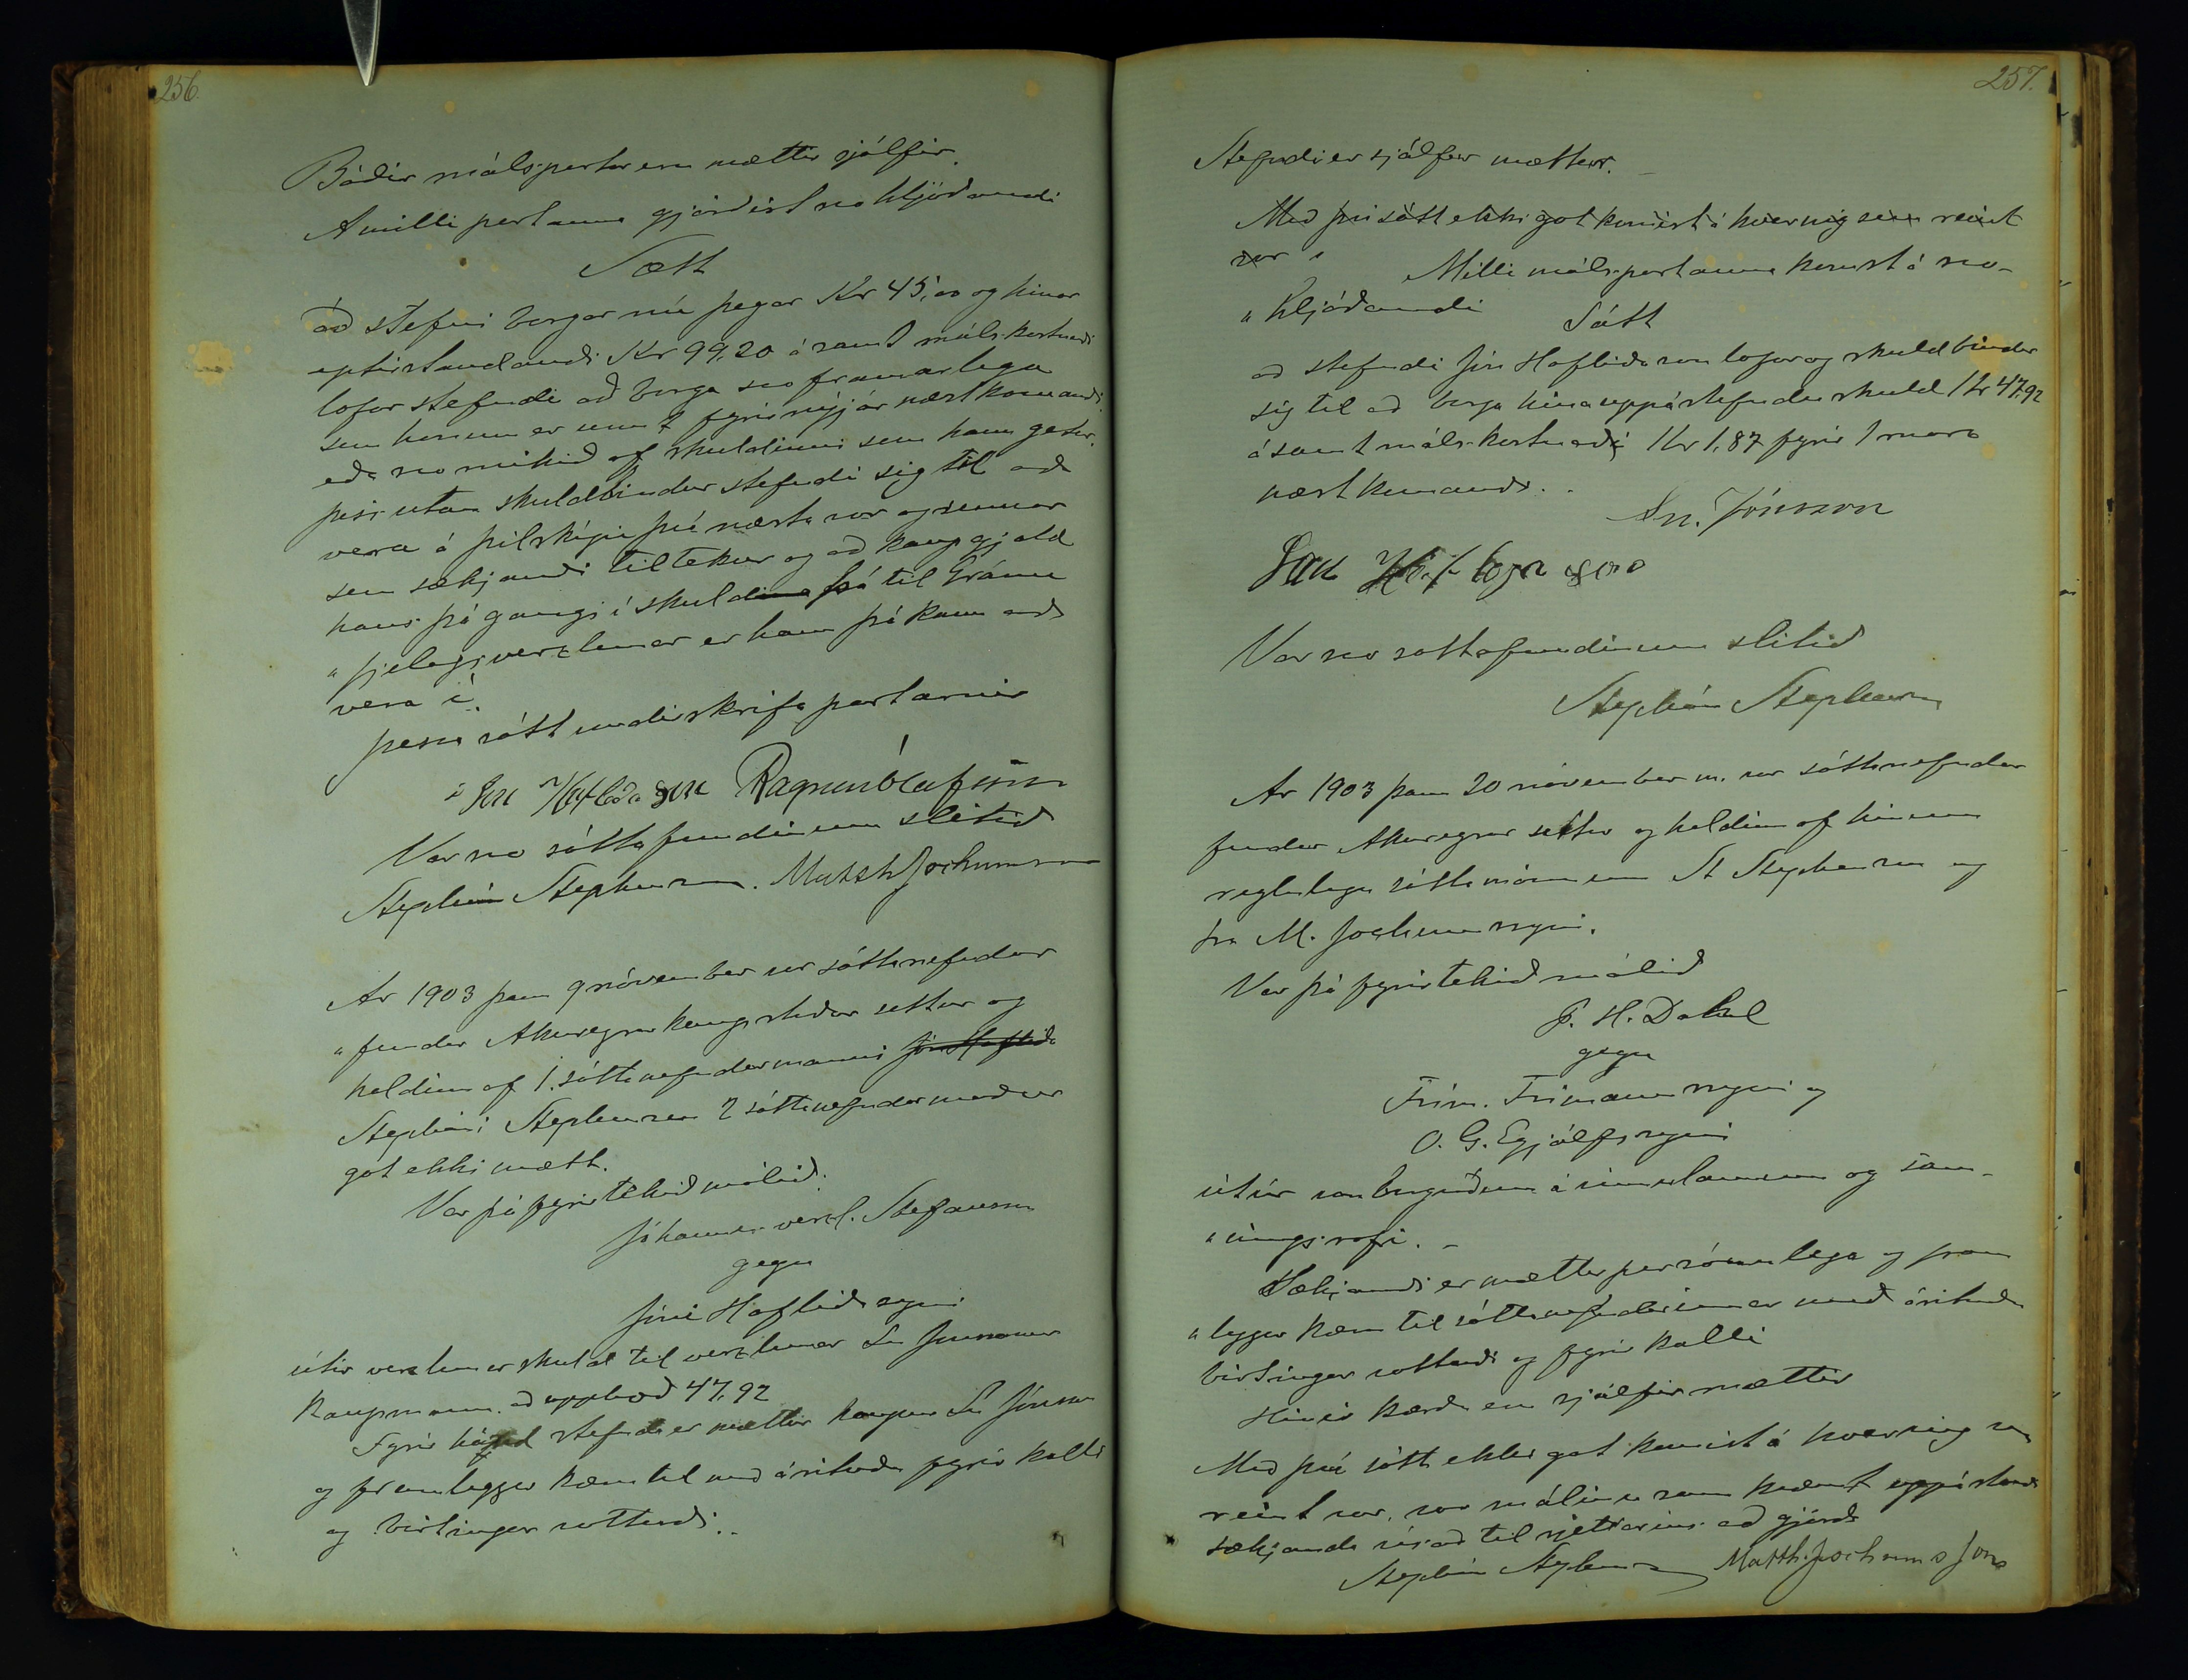 256.
Báðir málspartar eru mættir sjálfir.
A milli partanna gjörðist svo hljóðandi
Sætt
að stefndi borgar nú þegar Kr 45,00 og hinar
eptirstandandi Kr 99,20 ásamt málskostnaði
lofar stefndi að borga svo framarlega
sem honum er unt fyrir nýjár næstkomandi
eða svo mikið af skuldinni sem hann getur,
þess utan skuldbindur stefndi sig til að
vera á þilskipi því næsta vor og sumar
sem sækjandi tiltekur og að kaupgjald
hans þá gangi í skuldina þá til Gránu
"fjelagsverzlunar er hann þá kann að
vera í.
Þessa sátt undirskrifa partarnir
Jón Hafliðason Ragnar Ólafsson
Var svo sáttafundinum slitið
Stephán Stephensen. Matth Jochumsson
Ár 1903 þann 9 nóvember var sáttanefndar
"fundur Akureyrarkaupstaðar settur og
haldinn af 1. sáttanefndarmanni Jón Hafliða
Stepháni Stephensen 2 sáttanefndarmaður
gat ekki mætt.
Var þá fyrirtekið málið:
Jóhannes verzl. Stefánsson
gegn
Jóni Hafliðasyni
útúr verzlunarskuld til verzlunar Sn Jónssonar
kaupmanns að upphæð 47,92
Fyrir hönd stefnda er mættur kaupm Sn Jónsson
og framleggur kæru til með árituðu fyrirkalli
og birtingar vottorði..
257.
Stefndi er sjálfur mættur.
Með því sátt ekki gat komist á hvernig sem reint
var
Milli málspartanna komst á svo-
"hljóðandi
Sátt
að stefndi Jón Hafliðason lofar og skuldbindur
sig til að borga hina uppástefndu skuld Kr 47,92
ásamt málskostnaði Kr 1,87 fyrir 1 mars
næstkomandi..
Sn. Jónsson
Jón Hafliðason
Var svo sáttafundinum slitið
Stephán Stephensen
Ár 1903 þann 20 nóvember m. var sáttanefndar
fundur Akureyrar settur og haldinn af hinum
reglulegu sáttamönnum St Stephensen og
sra M. Jochumssyni.
Var þá fyrirtekið málið
J. H. Dahl
gegn
Frím. Frímannssyni og
O. G. Eyjólfssyni
útúr vanborguðum vinnulaunum og samn-
"ingsrofi. -
Sækjandi er mættur persónulega og fram
"leggur kæru til sáttanefndarinnar með árituðu
birtingar vottorði og fyrirkalli
Hinir kærðu eru sjálfir mættir
Með því sátt ekki gat komist á hvernig sem
reint var, var málinu samkvæmt uppástandi
sækjanda vísað til rjettarins að gjörðu
Stephán Stephensen Matth. Jochumsson